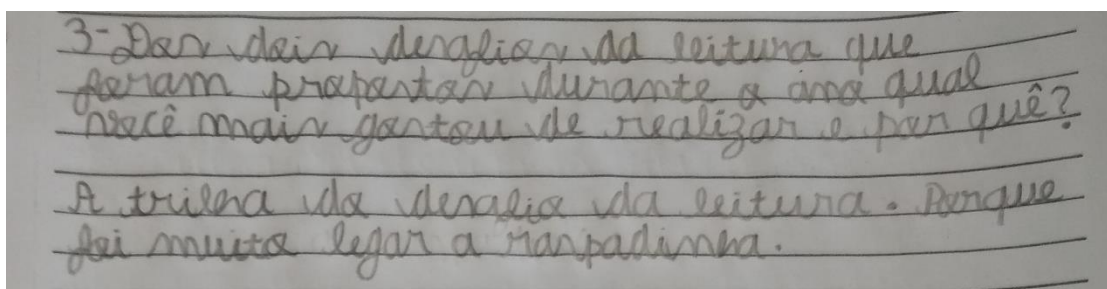 3- Dos dois desafios da leitura que
foram propostos durante o ano qual
você mais gostou de realizar e por quê?
A trilha do desafio da leitura. Porque
foi muito legar a raspadinha.